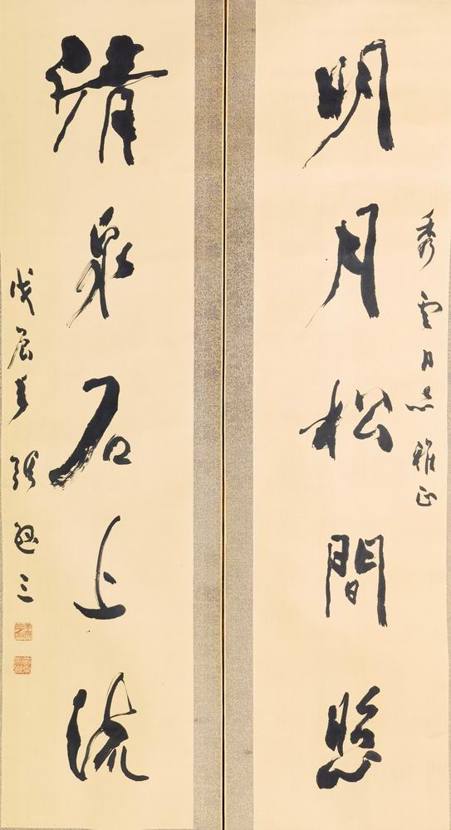 秀雲同志雅正
明月松間照
清泉石上流
戊辰年 張